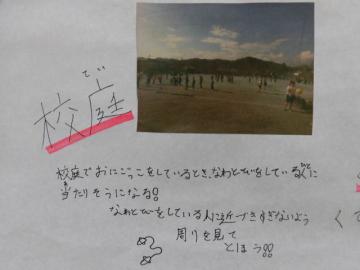 てい
校庭
校庭でおにごっこをしているとき、なわとびをしている人に
当たりそうになる!!
なわとびをしている人に近づきすぎないよう
周りを見て
とほう!!
く